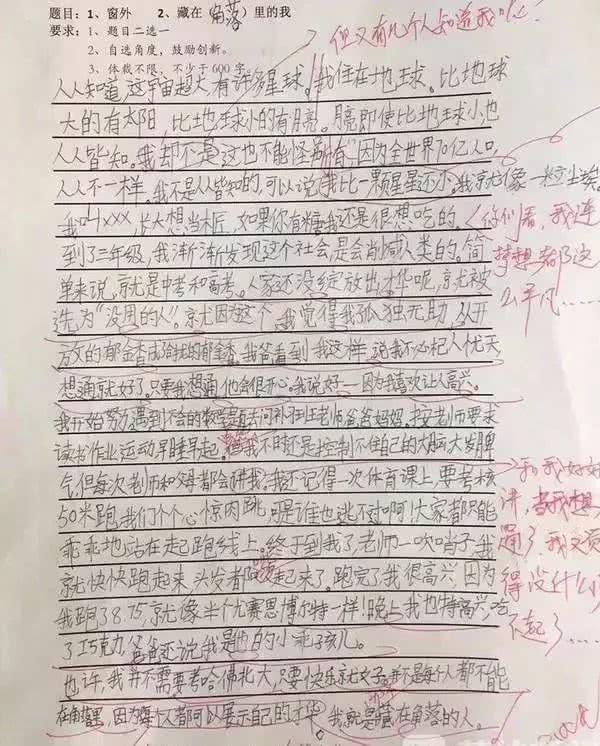 题目：1、窗外 2、藏在（角落）里的我
要求：1、题目二选一
2、自选角度，鼓励创新。
3、体裁不限，不少于600字
但又有几个人知道我呢
人人知道，这宇宙超大有许多星球。我住在地球。比地球
大的有太阳，比地球小的有月亮。月亮即使比地球小，也
人人皆知。我却不是这也不能怪所有，因为全世界70亿人口，
人人不一样。我不是人皆知的，可以说我比一颗星星还小。我就像一粒尘埃。
我叫xxx，长大想当木匠，如果你有糖我还是很想吃的。
你们看，我连
梦想都这
么平凡……
到了三年级，我渐渐发现这个社会，是会消灭人类的。简
单来说，就是中考和高考。人家还没绽放出才华呢，就被
选为“没用的人”。就因为这个，我觉得我孤独无助，从开
放的郁金香成给我的郁金香。我爸看到我这样，说我不必杞人忧天
想通就好了。只要我想通，他会很开心。我说好——因为我喜欢让人高兴。
我开始努力，遇到不会的数学题去问补习班老师爸爸妈妈，按老师要求
读书作业运动早睡早起。但我不时还是控制不住自己的大脑大发脾
气，但每次老师和父母都会讲我。我还记得一次体育课上，要考核
和我好好
讲，当我想
通了，我又觉
得没什么
不起了……
50米跑，我们个个心惊肉跳，可是谁也逃不过啊！大家都只能
乖乖地站在起跑线上。终于到我了，老师一吹哨子，我
就快快跑起来，头发都起来了。跑完了我很高兴，因为
我跑了8.75，就像半个尤赛恩博尔特一样！晚上我也特高兴，吃
了巧克力，爸爸还说我是他的小乖孩儿。
也许，我并不需要考哈佛北大，只要快乐就好并不是每个人都不能
在角落里，因为每个人都可以展示自己的才华。我就是藏在角落的人。